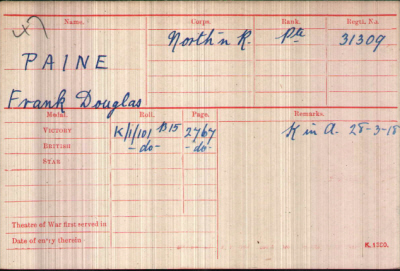 Name. Corps. Rank. Regtl. No.
North'n R. Pte 31309
PAINE
Frank Douglas
Medal. Roll. Page. Remarks.
VICTORY K/1/101 B15 2767 K in A. 28-3-18
BRITISH -do- -do-
STAR
Theatre of War first served in
Date of entry therein
K. 1380.